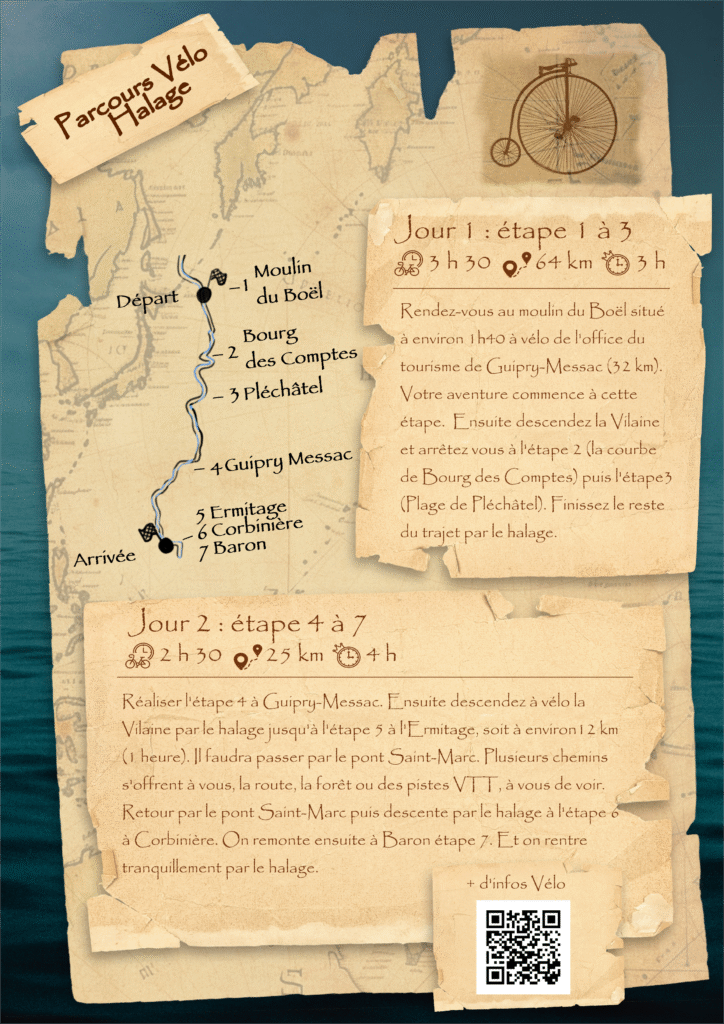 Parcours Vélo
Halage
Jour 1 : étape 1 à 3
3 h 30 64 km 3 h
Rendez-vous au moulin du Boël situé
à environ 1h40 à vélo de l'office du
tourisme de Guipry-Messac (32 km).
Votre aventure commence à cette
étape. Ensuite descendez la Vilaine
et arrêtez vous à l'étape 2 (la courbe
de Bourg des Comptes) puis l'étape3
(Plage de Pléchâtel). Finissez le reste
du trajet par le halage.
Départ
1 Moulin
du Boël
2 Bourg
des Comptes
3 Pléchâtel
4 Guipry Messac
5 Ermitage
6 Corbinière
7 Baron
Arrivée
Jour 2 : étape 4 à 7
2 h 30 25 km 4 h
Réaliser l'étape 4 à Guipry-Messac. Ensuite descendez à vélo la
Vilaine par le halage jusqu'à l'étape 5 à l'Ermitage, soit à environ12 km
(1 heure). Il faudra passer par le pont Saint-Marc. Plusieurs chemins
s'offrent à vous, la route, la forêt ou des pistes VTT, à vous de voir.
Retour par le pont Saint-Marc puis descente par le halage à l'étape 6
à Corbinière. On remonte ensuite à Baron étape 7. Et on rentre
tranquillement par le halage.
+ d'infos Vélo